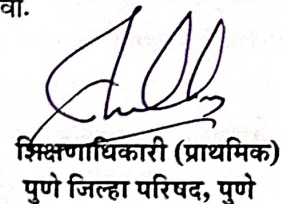 वा.
शिक्षणाधिकारी (प्राथमिक)
पुणे जिल्हा परिषद, पुणे